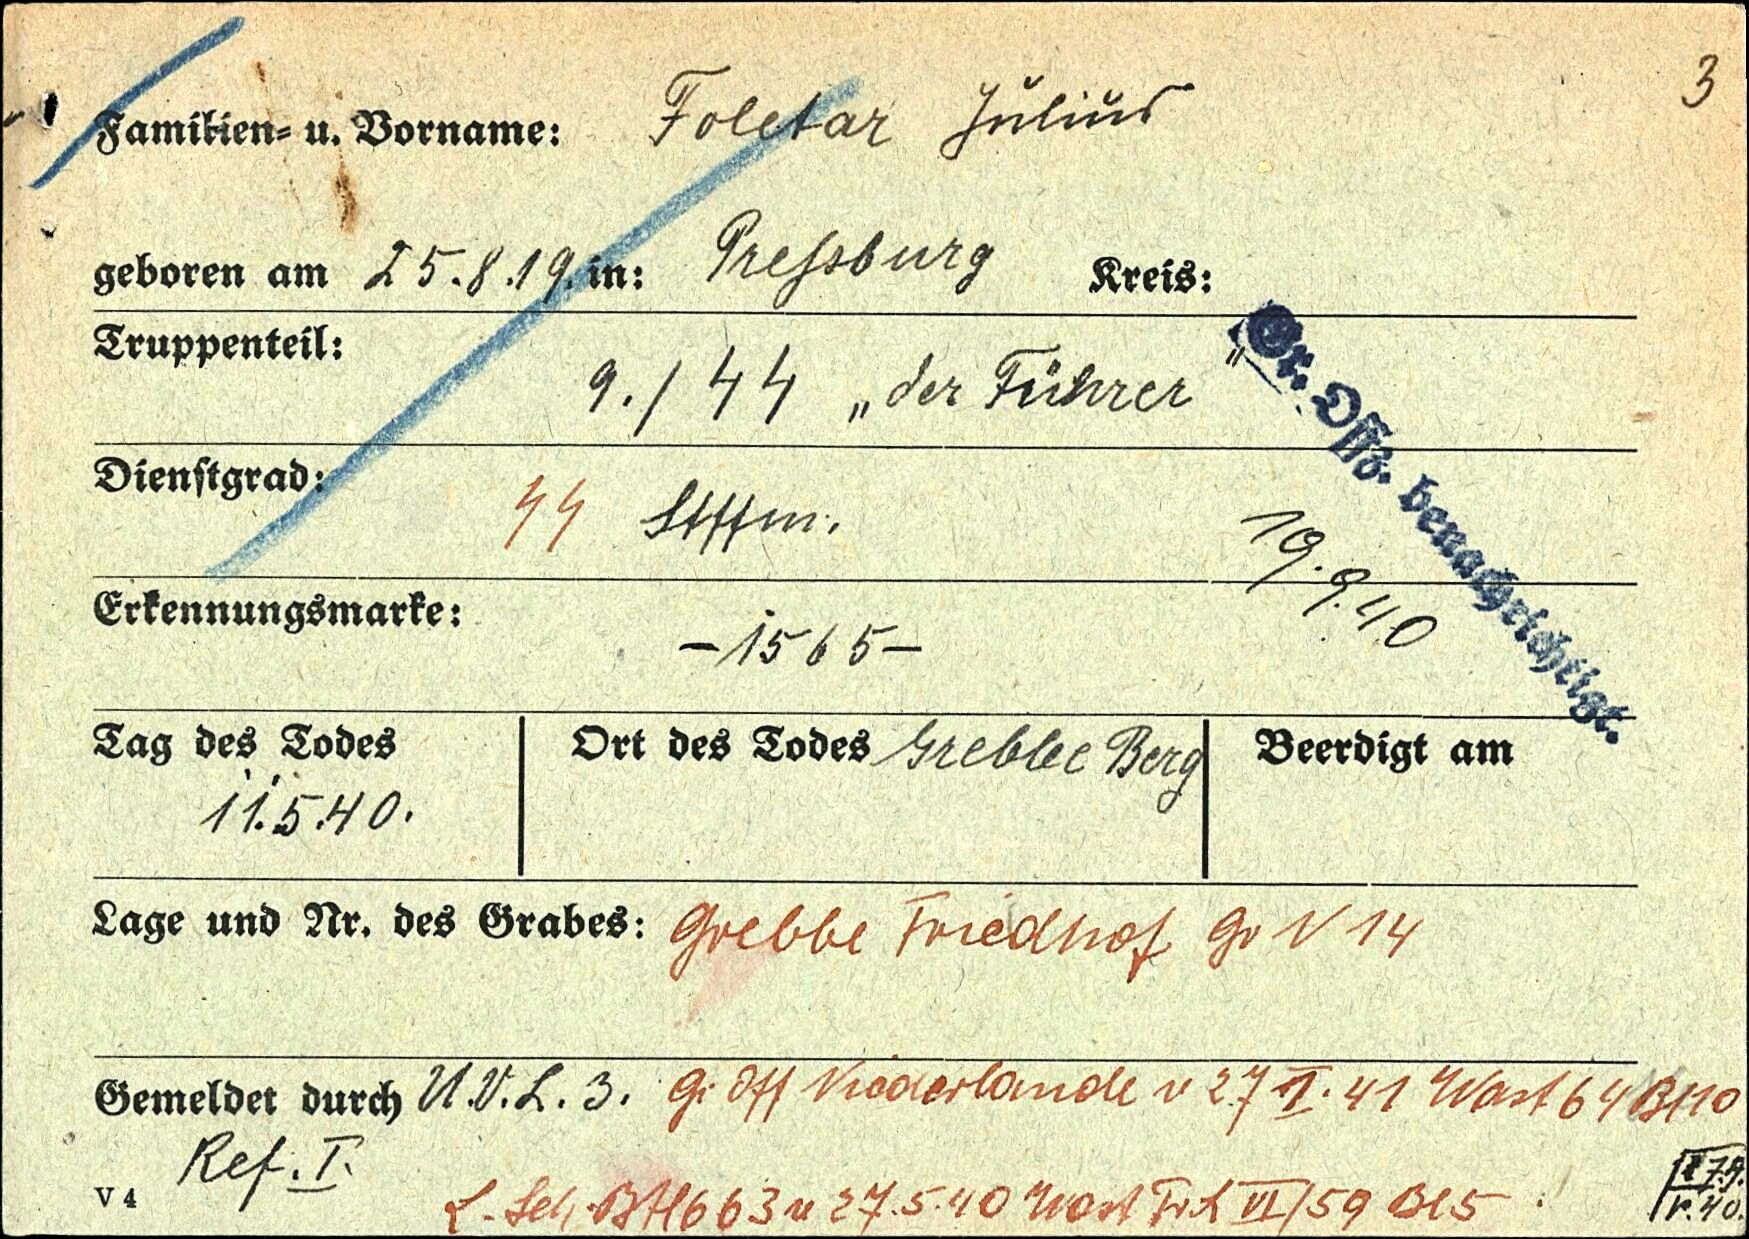 3
Familien- u. Vorname: Foletar Julius
geboren am 25.8.19. in: Pressburg Kreis:
Truppenteil: 9./ᛋᛋ „der Führer"
Gr. Offz. benachrichtigt.
Dienstgrad: ᛋᛋ Stffm.
19.9.40
Erkennungsmarke: -1565-
Tag des Todes
11.5.40.
Ort des Todes Grebbe Berg
Beerdigt am
Lage und Nr. des Grabes: Grebbe Friedhof Gr 14
Gemeldet durch U.V.L. 3. G. Off Niederlande v 27 41 Wast 64 Bl 10
Ref. I.
V 4
L. Sch. 663 v 27.5.40 Wast VI/59 Bl 5